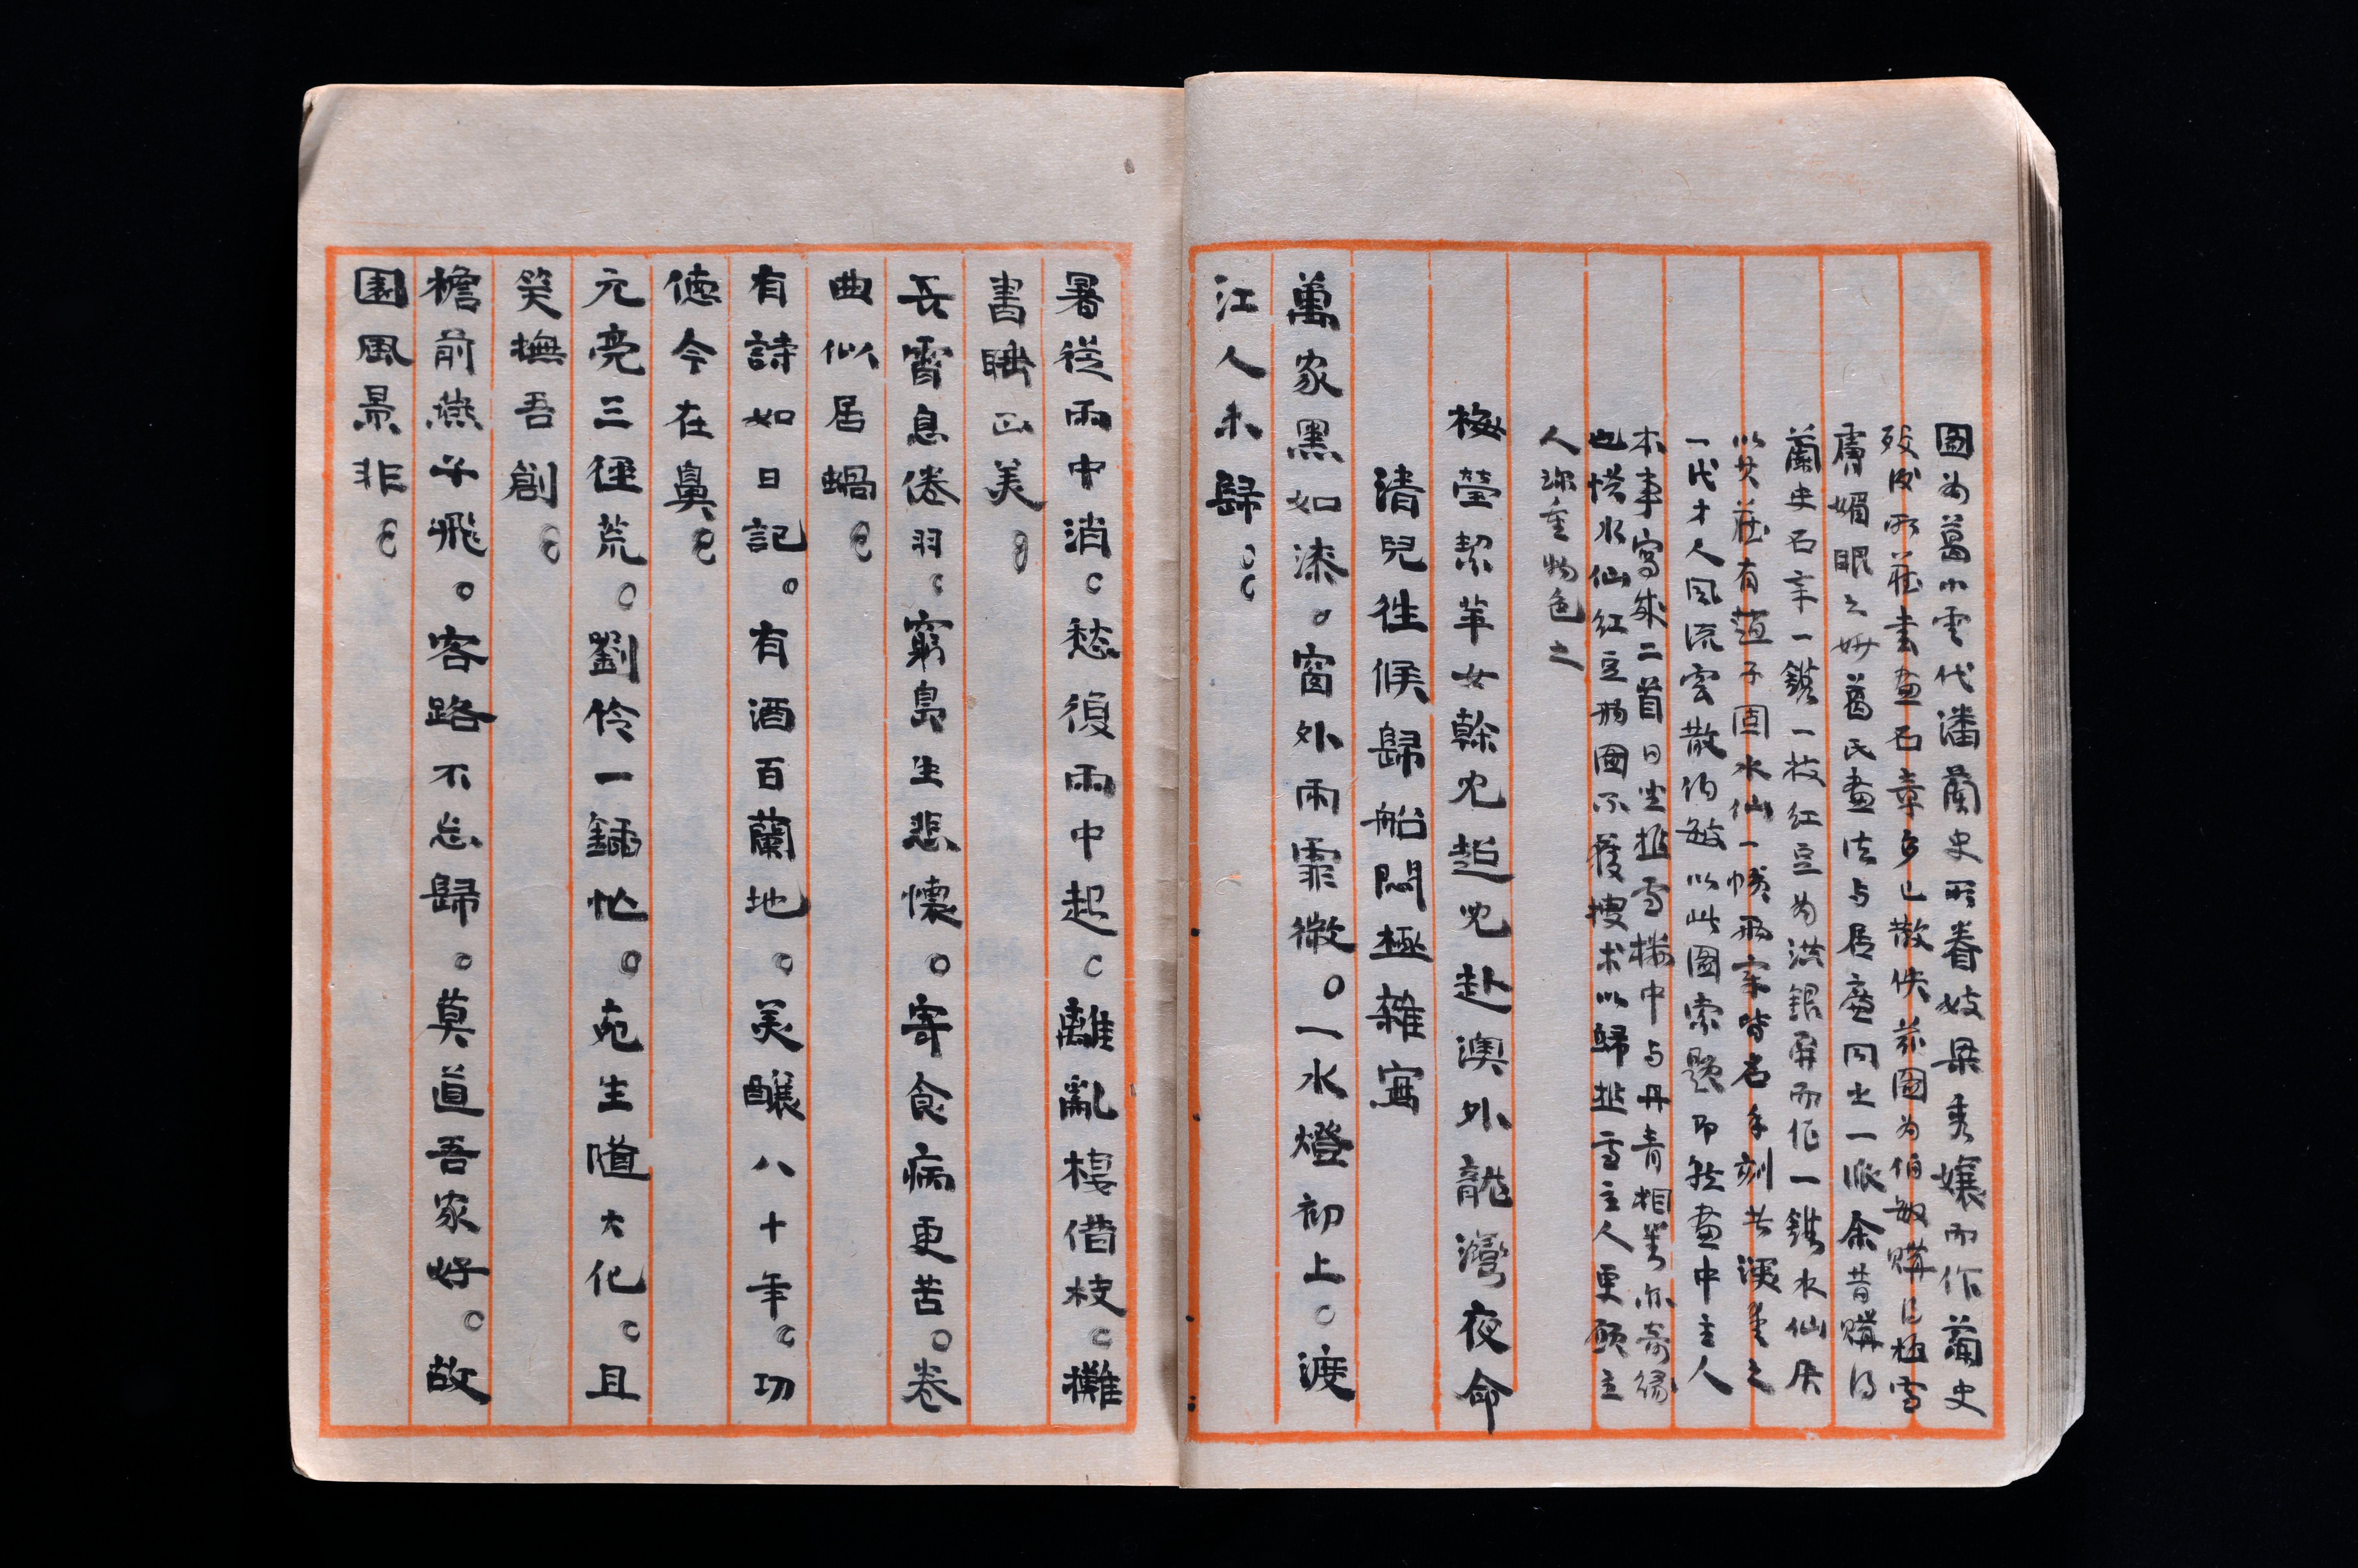 圖為葛小雲代潘蘭史所眷妓梁秀嬢而作蘭史
歿後所藏書畫石章多已散佚茲圖為伯敏購得極雪
膚媚眼之妍葛氏畫法与居廉同出一派余昔購得
蘭史石章一鐫一枝紅豆為洪銀屏而作一鐫水仙居
以其藏有蓮子固水仙一幀兩章皆名手刻者漢美之
一代才人風流雲散伯敏以此圖索題即於畫中主人
本事寫成二首日坐披雪樓中与丹青相對亦奇緣
也惜水仙紅豆兩圖不獲搜求以歸披雪主人更願主
人珍重物色之
梅瑩絜苹女幹兒超兒赴澳外龍灣夜命
清兒往候歸船悶極雜寫
萬家黑如漆。窗外雨霏微。一水燈初上。渡
江人未歸。。
暑從雨中消。愁復雨中起。離亂棲借枝。攤
書睡正美。
長霄息倦羽。窮島生悲懷。寄食病更苦。卷
曲似居蝸。
有詩如日記。有酒百蘭地。美醸八十年。功
徳今在鼻。
元亮三徑荒。劉伶一鍤忙。死生隨大化。且
笑撫吾創。
檐前燕子飛。客路不忘歸。莫道吾家好。故
園風景非。